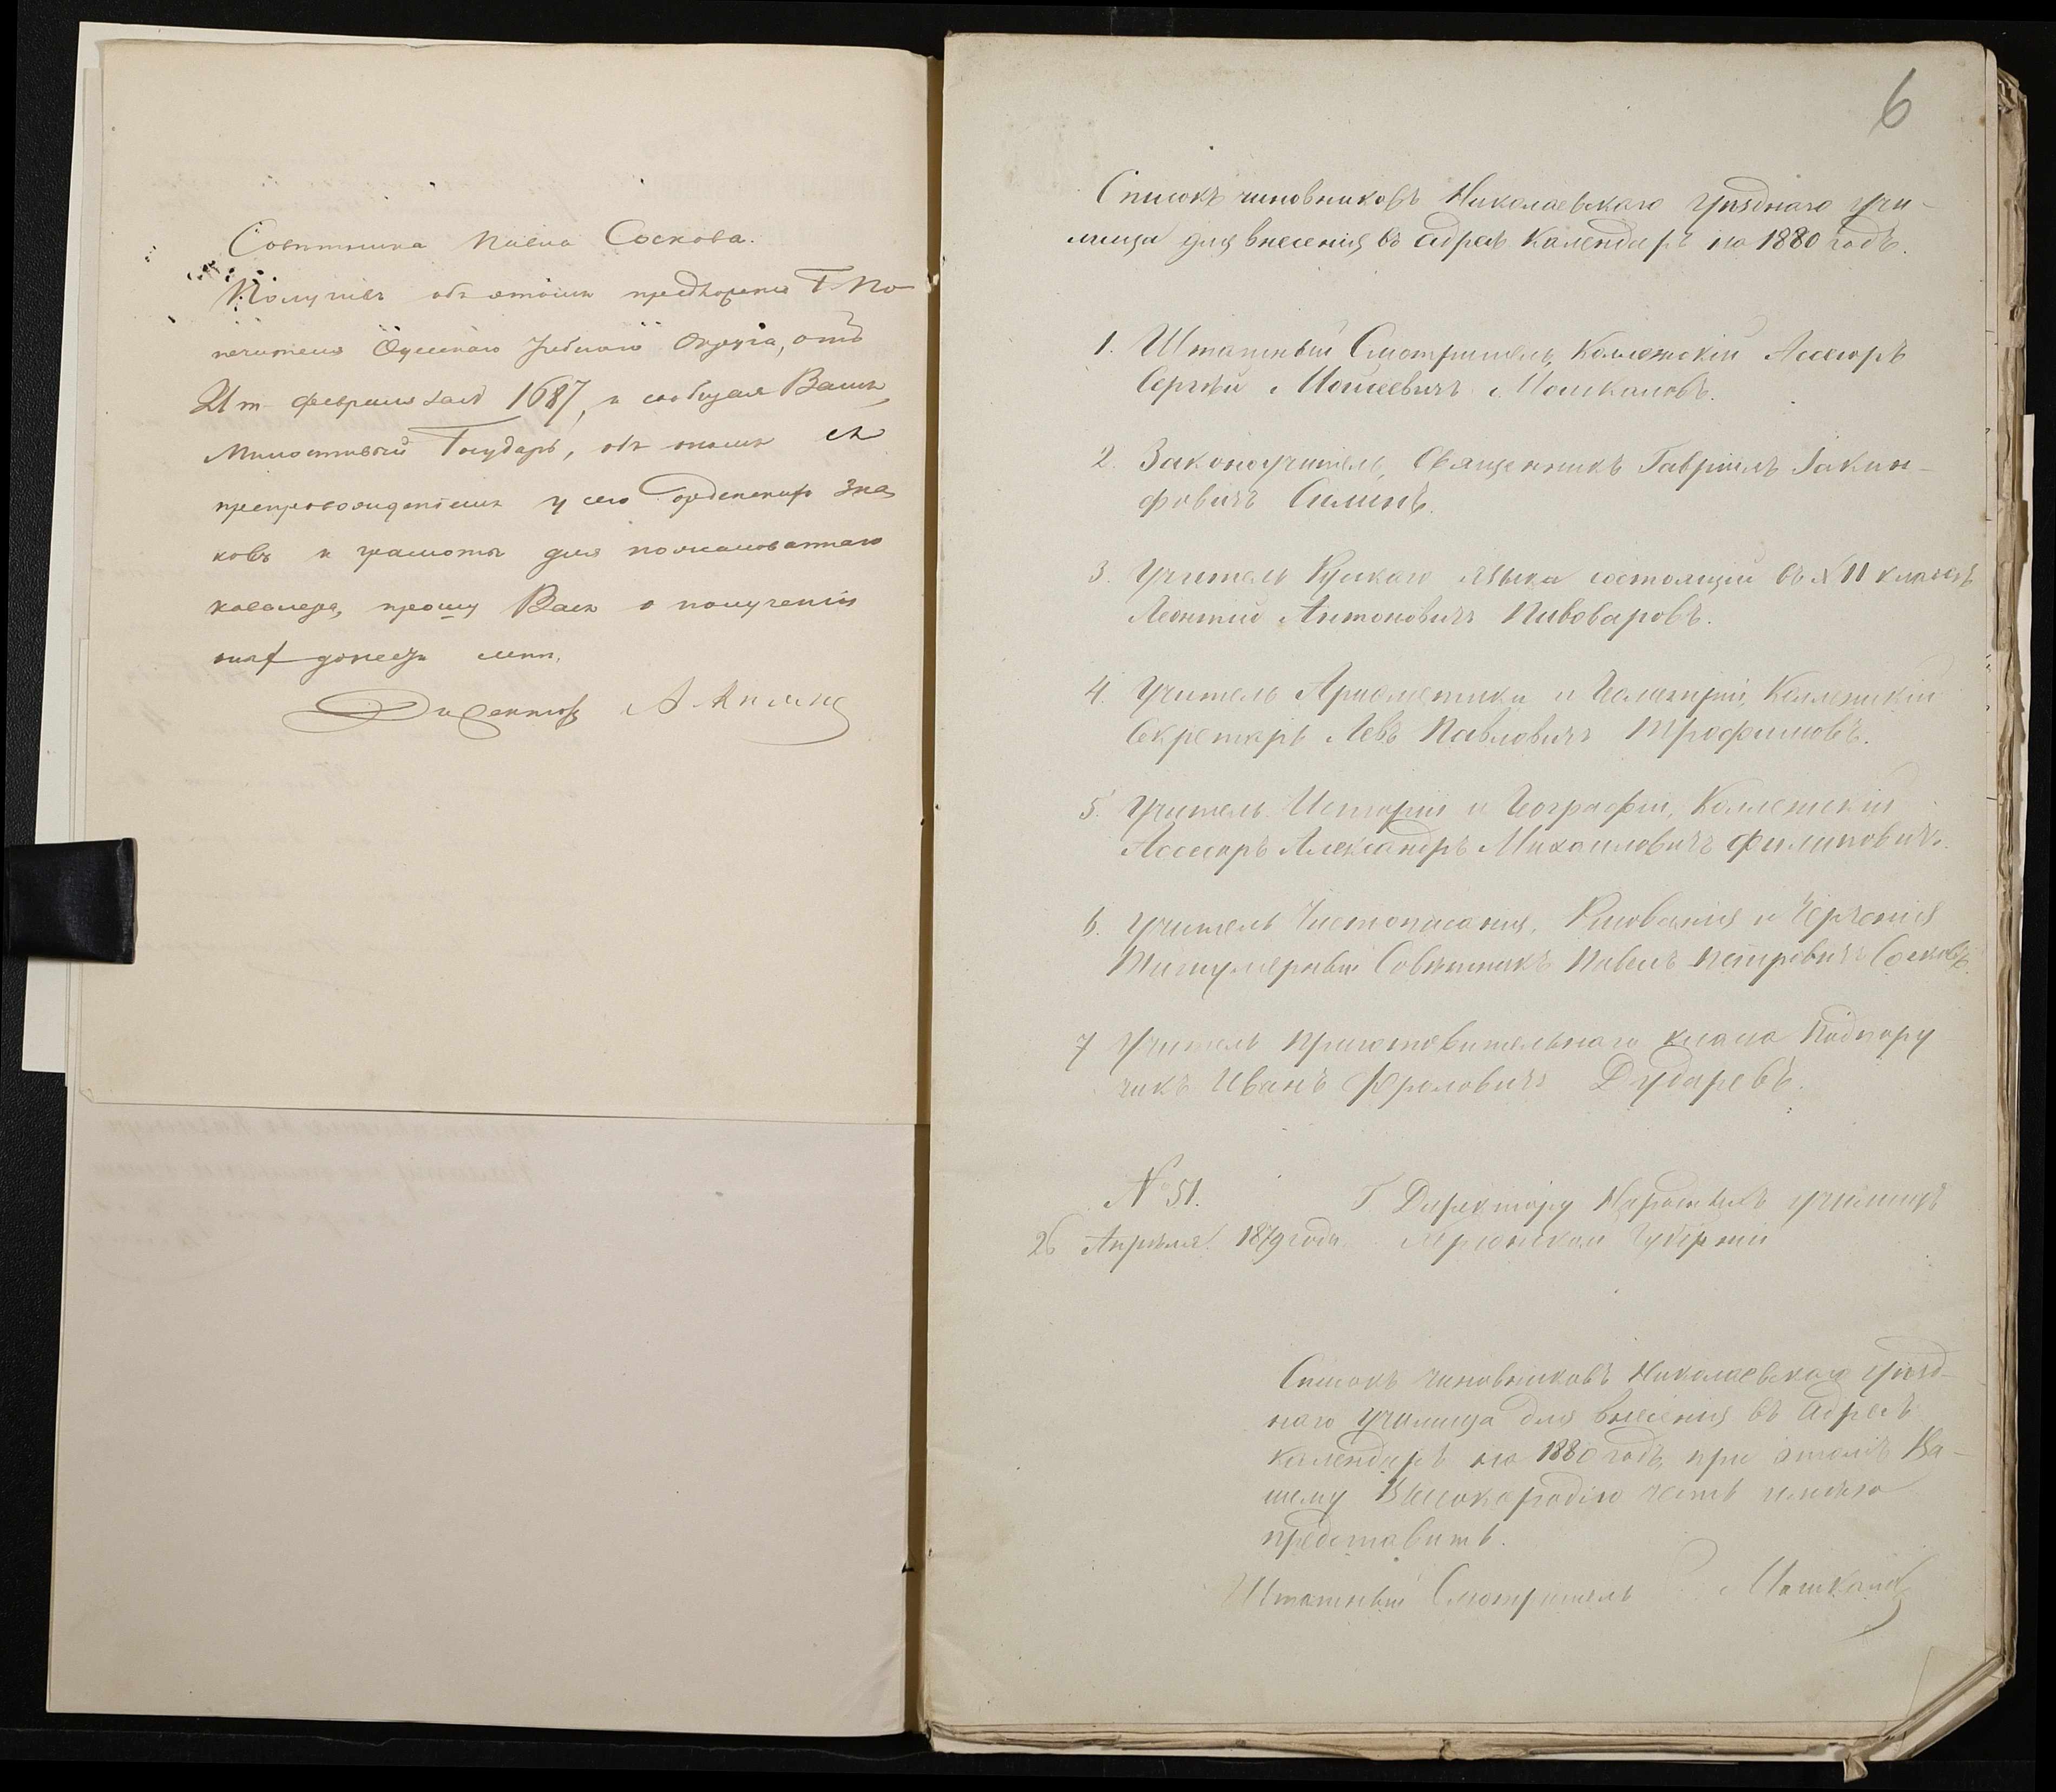 Совѣтника Павла Соскова.
Получивъ объ этомъ предложеніе Г. По-
печителя Одесскаго Учебнаго Округа, отъ
21го февраля за № 1687, и сообщая Вамъ,
Милостивый Государь, объ этомъ съ
препровожденіемъ у сего орденскихъ зна
ковъ и грамоты для пожалованнаго
кавалера, прошу Васъ о полученіи
ихъ донести мнѣ.
Директоръ А.
6
Списокъ чиновниковъ Николаевскаго Уѣзднаго учи-
лища для внесенія въ Адресъ Календарь на 1880 годъ.
1. Штатный Смотритель, Коллежскій Ассесоръ
Сергѣй Моисеевичъ Машкаловъ.
2. Законоучитель, Священникъ Гавріилъ Іакин-
фовичъ Силинъ.
3. Учитель Рускаго языка состоящій въ XII классѣ
Леонтій Антоновичъ Пивоваровъ.
4. Учитель Ариѳметики и Геометріи, Коллежскій
Секретарь Левъ Павловичъ Трофимовъ.
5. Учитель Исторіи и Географіи, Коллежскій
Ассесоръ Александръ Михаиловичъ Филиповичъ.
6. Учитель Чистописанія, Рисованія и Черченія
Титулярный Совѣтникъ Павелъ Петровичъ Сосковъ.
7 Учитель приготовительнаго класа Подпору
чикъ Иванъ Фроловичъ Дударевъ.
№ 51. Г. Директору Народныхъ училищъ
26 Апрѣля 1879 года Херсонской Губерніи
Списокъ чиновниковъ Николаевскаго уѣзд-
наго училища для внесенія въ Адресъ
календарь на 1880 годъ, при этомъ Ва-
шему Высокородію честь имѣю
представить.
Штатный Смотритель С. Машкаловъ